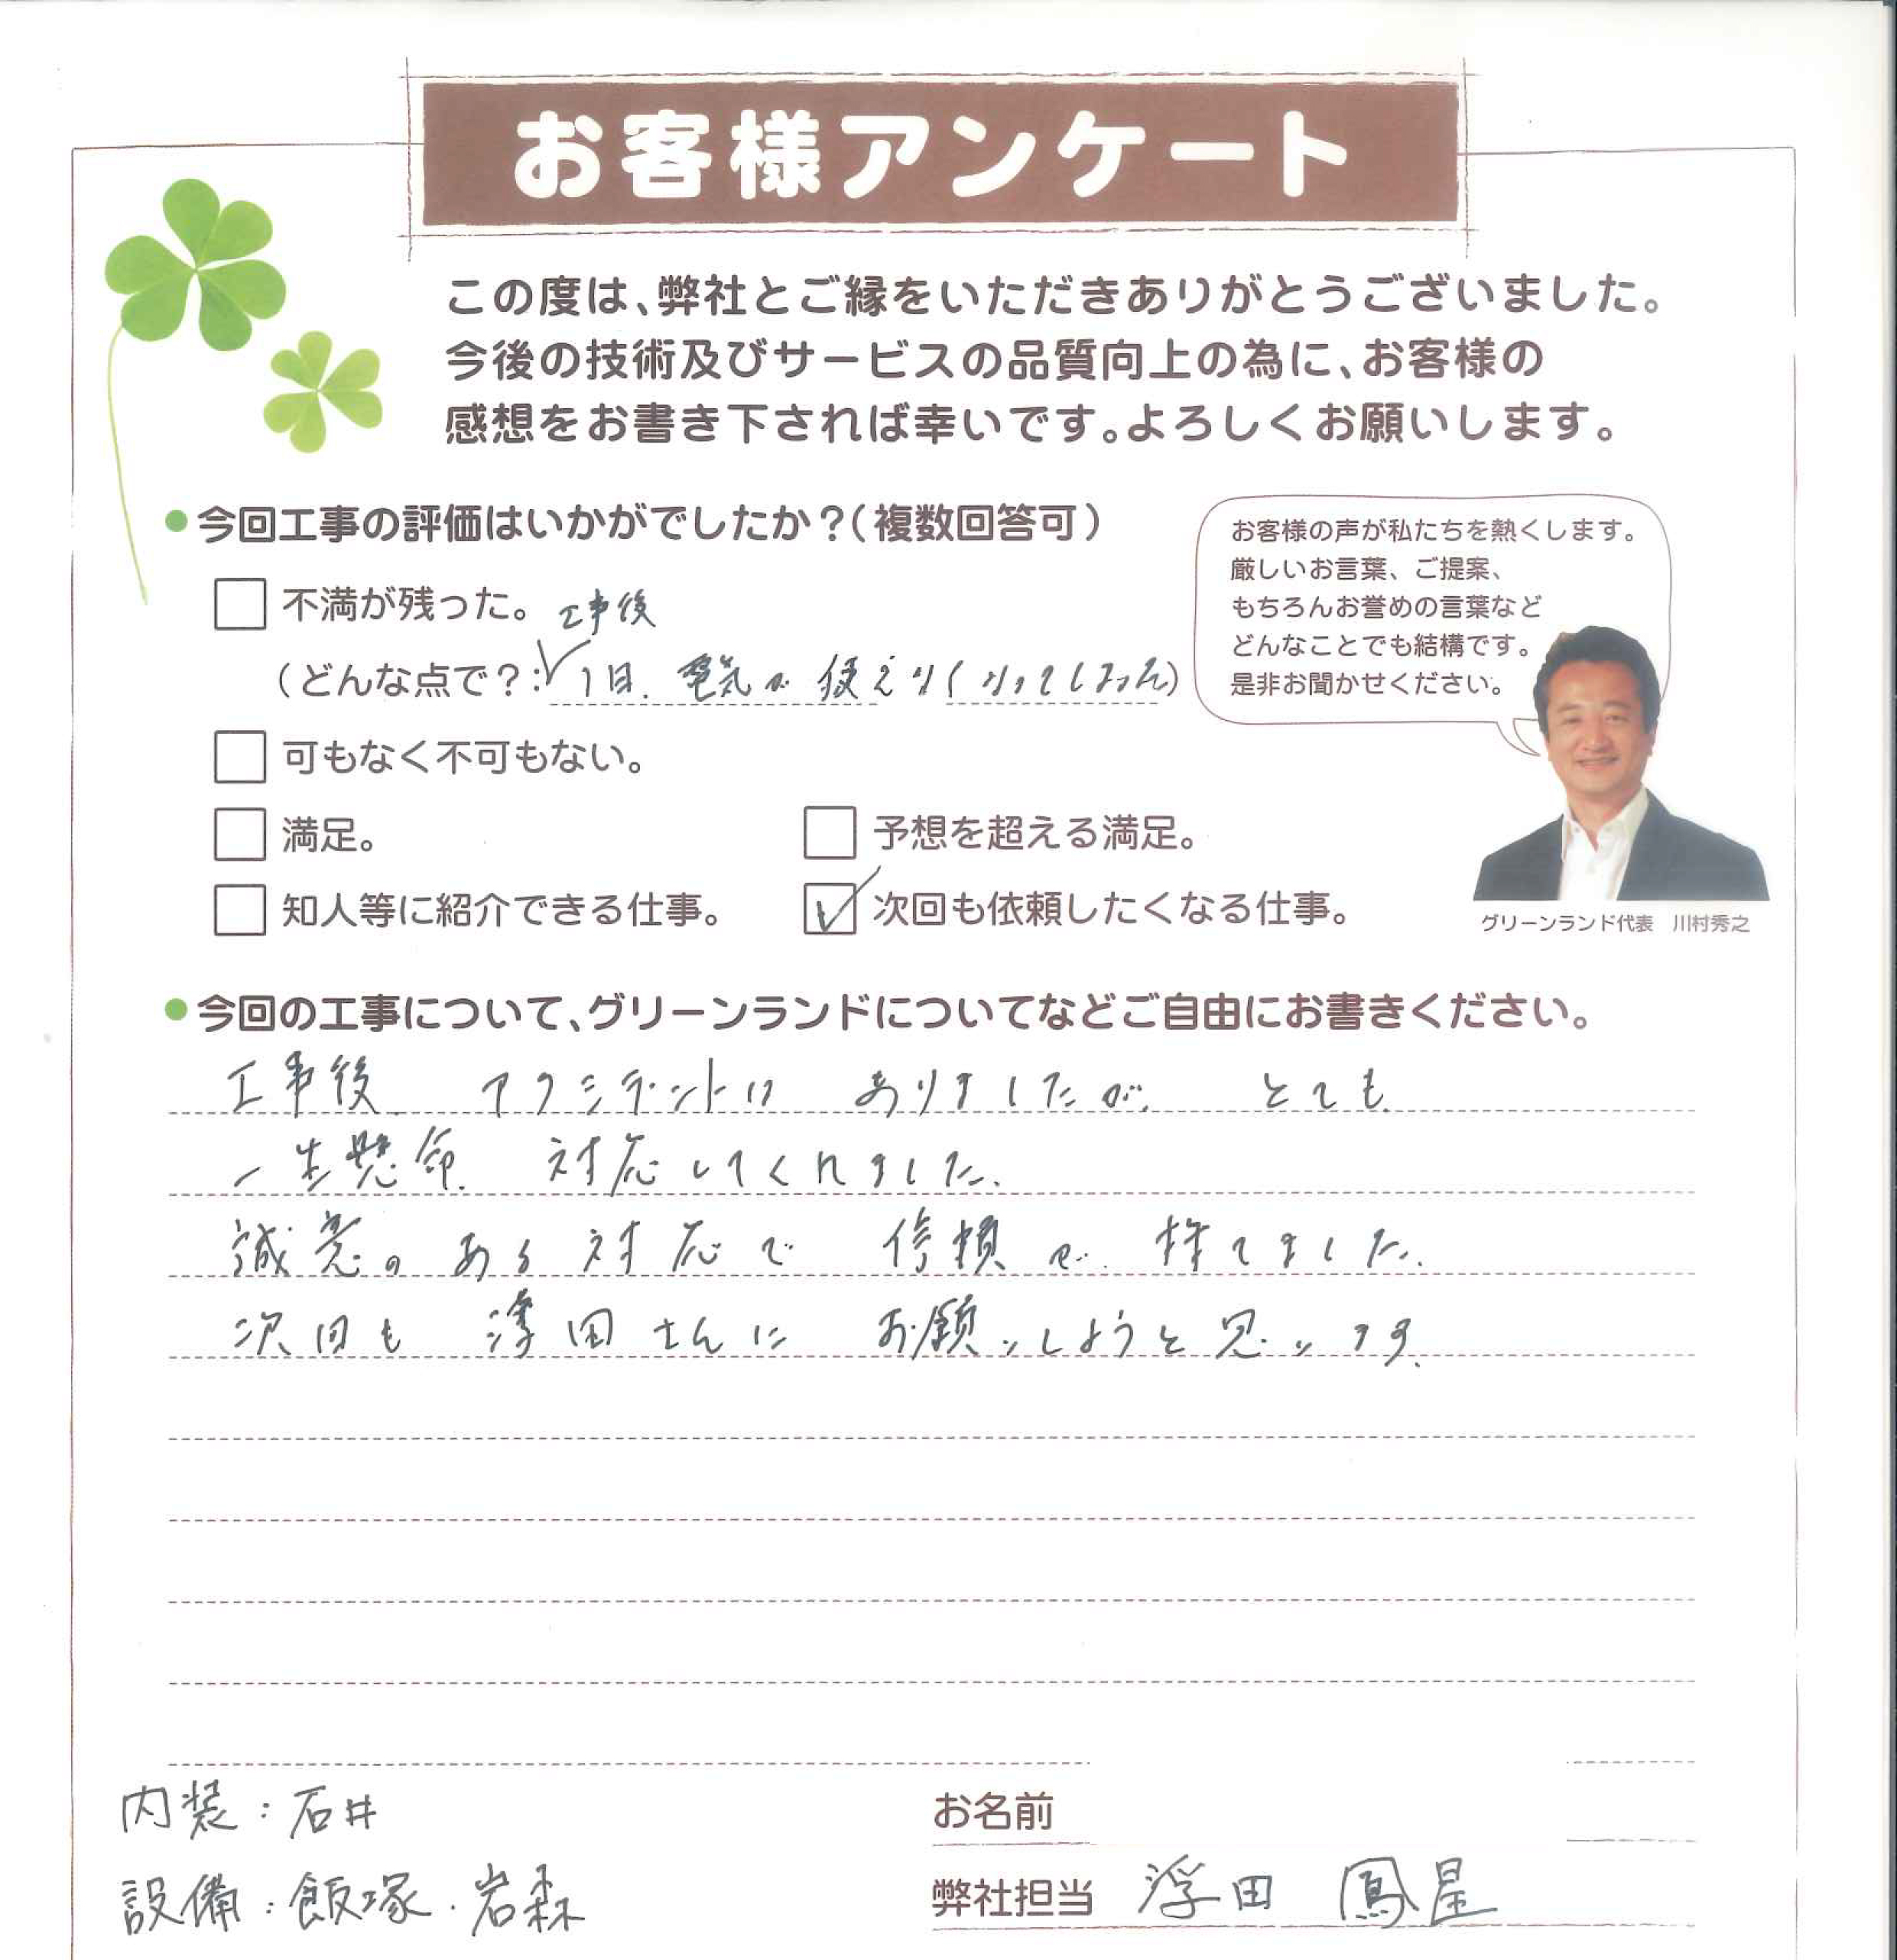 お客様アンケート
この度は、弊社とご縁をいただきありがとうございました。
今後の技術及びサービスの品質向上の為に、お客様の
感想をお書き下されば幸いです。よろしくお願いします。
●今回工事の評価はいかがでしたか？（複数回答可）
不満が残った。
工事後
（どんな点で？：✓1日、電気が使えなくなってしまった）
可もなく不可もない。
満足。
予想を超える満足。
知人等に紹介できる仕事。
✓次回も依頼したくなる仕事。
お客様の声が私たちを熱くします。
厳しいお言葉、ご提案、
もちろんお誉めの言葉など
どんなことでも結構です。
是非お聞かせください。
グリーンランド代表　川村秀之
●今回の工事について、グリーンランドについてなどご自由にお書きください。
工事後、アクシデントは ありましたが、とても
一生懸命、対応してくれました。
誠意のある対応で 信頼が 持てました。
次回も 浮田さんに お願いしようと思います。
内装：石井
設備：飯塚・岩森
お名前
弊社担当 浮田 鳳星